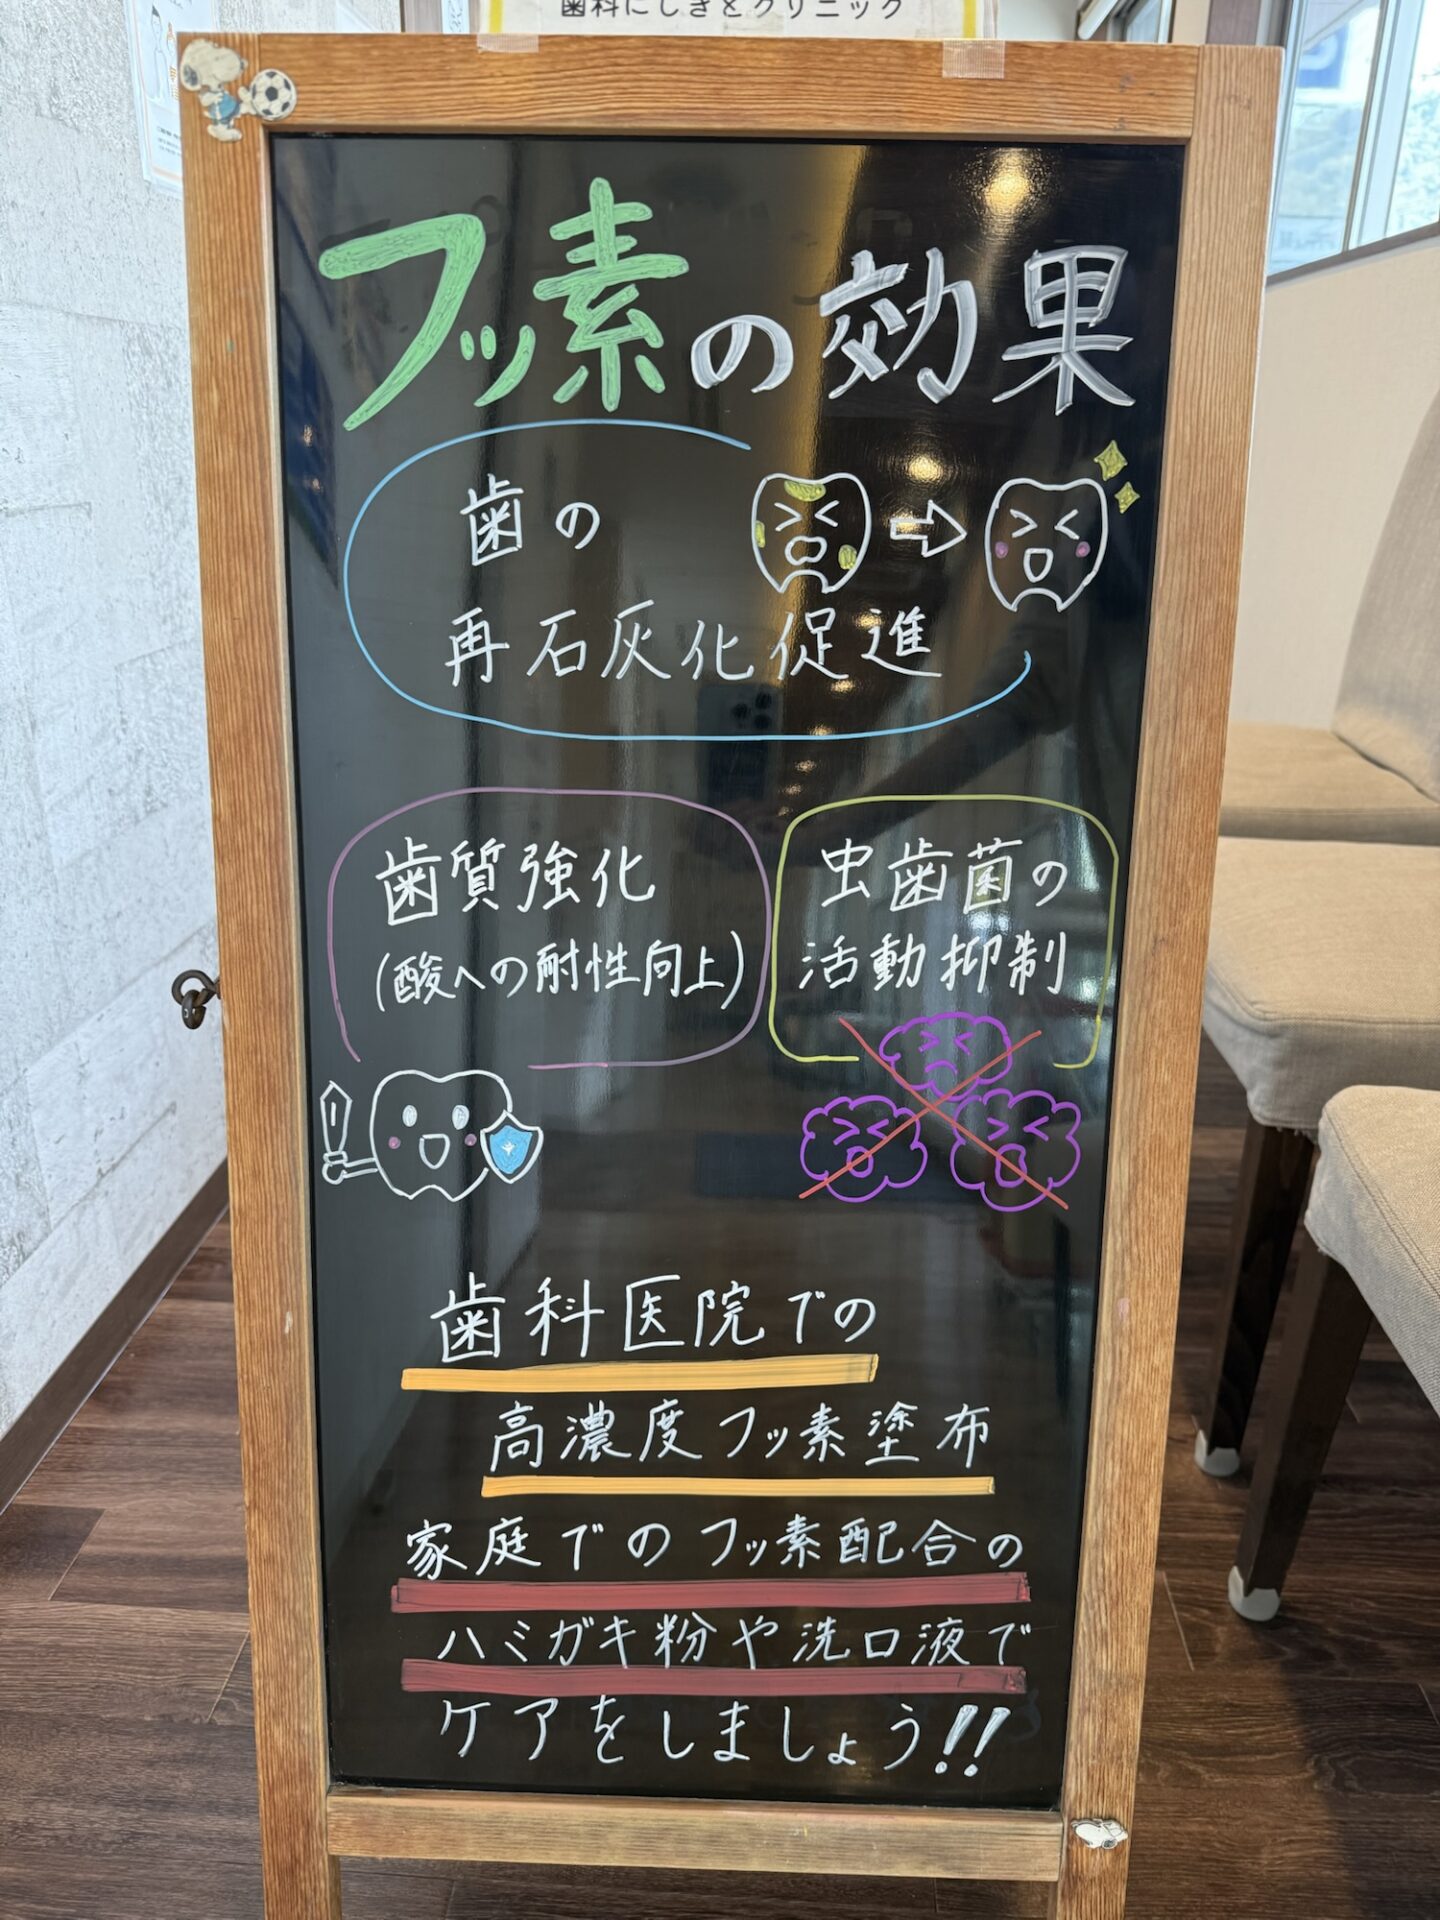 歯科にしきとクリニック
フッ素の効果
歯の
再石灰化促進
歯質強化
(酸への耐性向上)
虫歯菌の
活動抑制
歯科医院での
高濃度フッ素塗布
家庭でのフッ素配合の
ハミガキ粉や洗口液で
ケアをしましょう!!